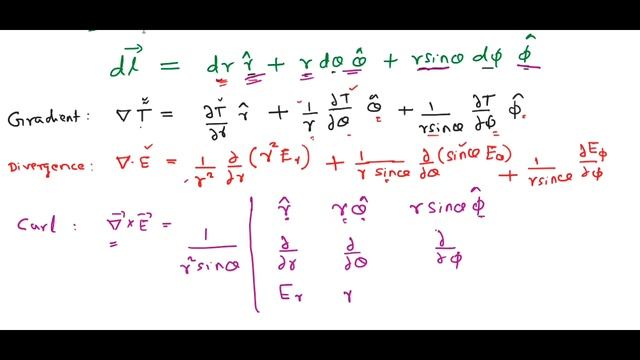 dl⃗ = dr r̂ + r dθ θ̂ + r sinθ dϕ ϕ̂
Gradient: ∇T = ∂T/∂r r̂ + 1/r ∂T/∂θ θ̂ + 1/(r sinθ) ∂T/∂ϕ ϕ̂
Divergence: ∇·E = 1/r² ∂/∂r (r² Eᵣ) + 1/(r sinθ) ∂/∂θ (sinθ Eθ) + 1/(r sinθ) ∂Eϕ/∂ϕ
Curl: ∇⃗×E⃗ = 1/(r² sinθ) | r̂ rθ̂ r sinθ ϕ̂
∂/∂r ∂/∂θ ∂/∂ϕ
Eᵣ r